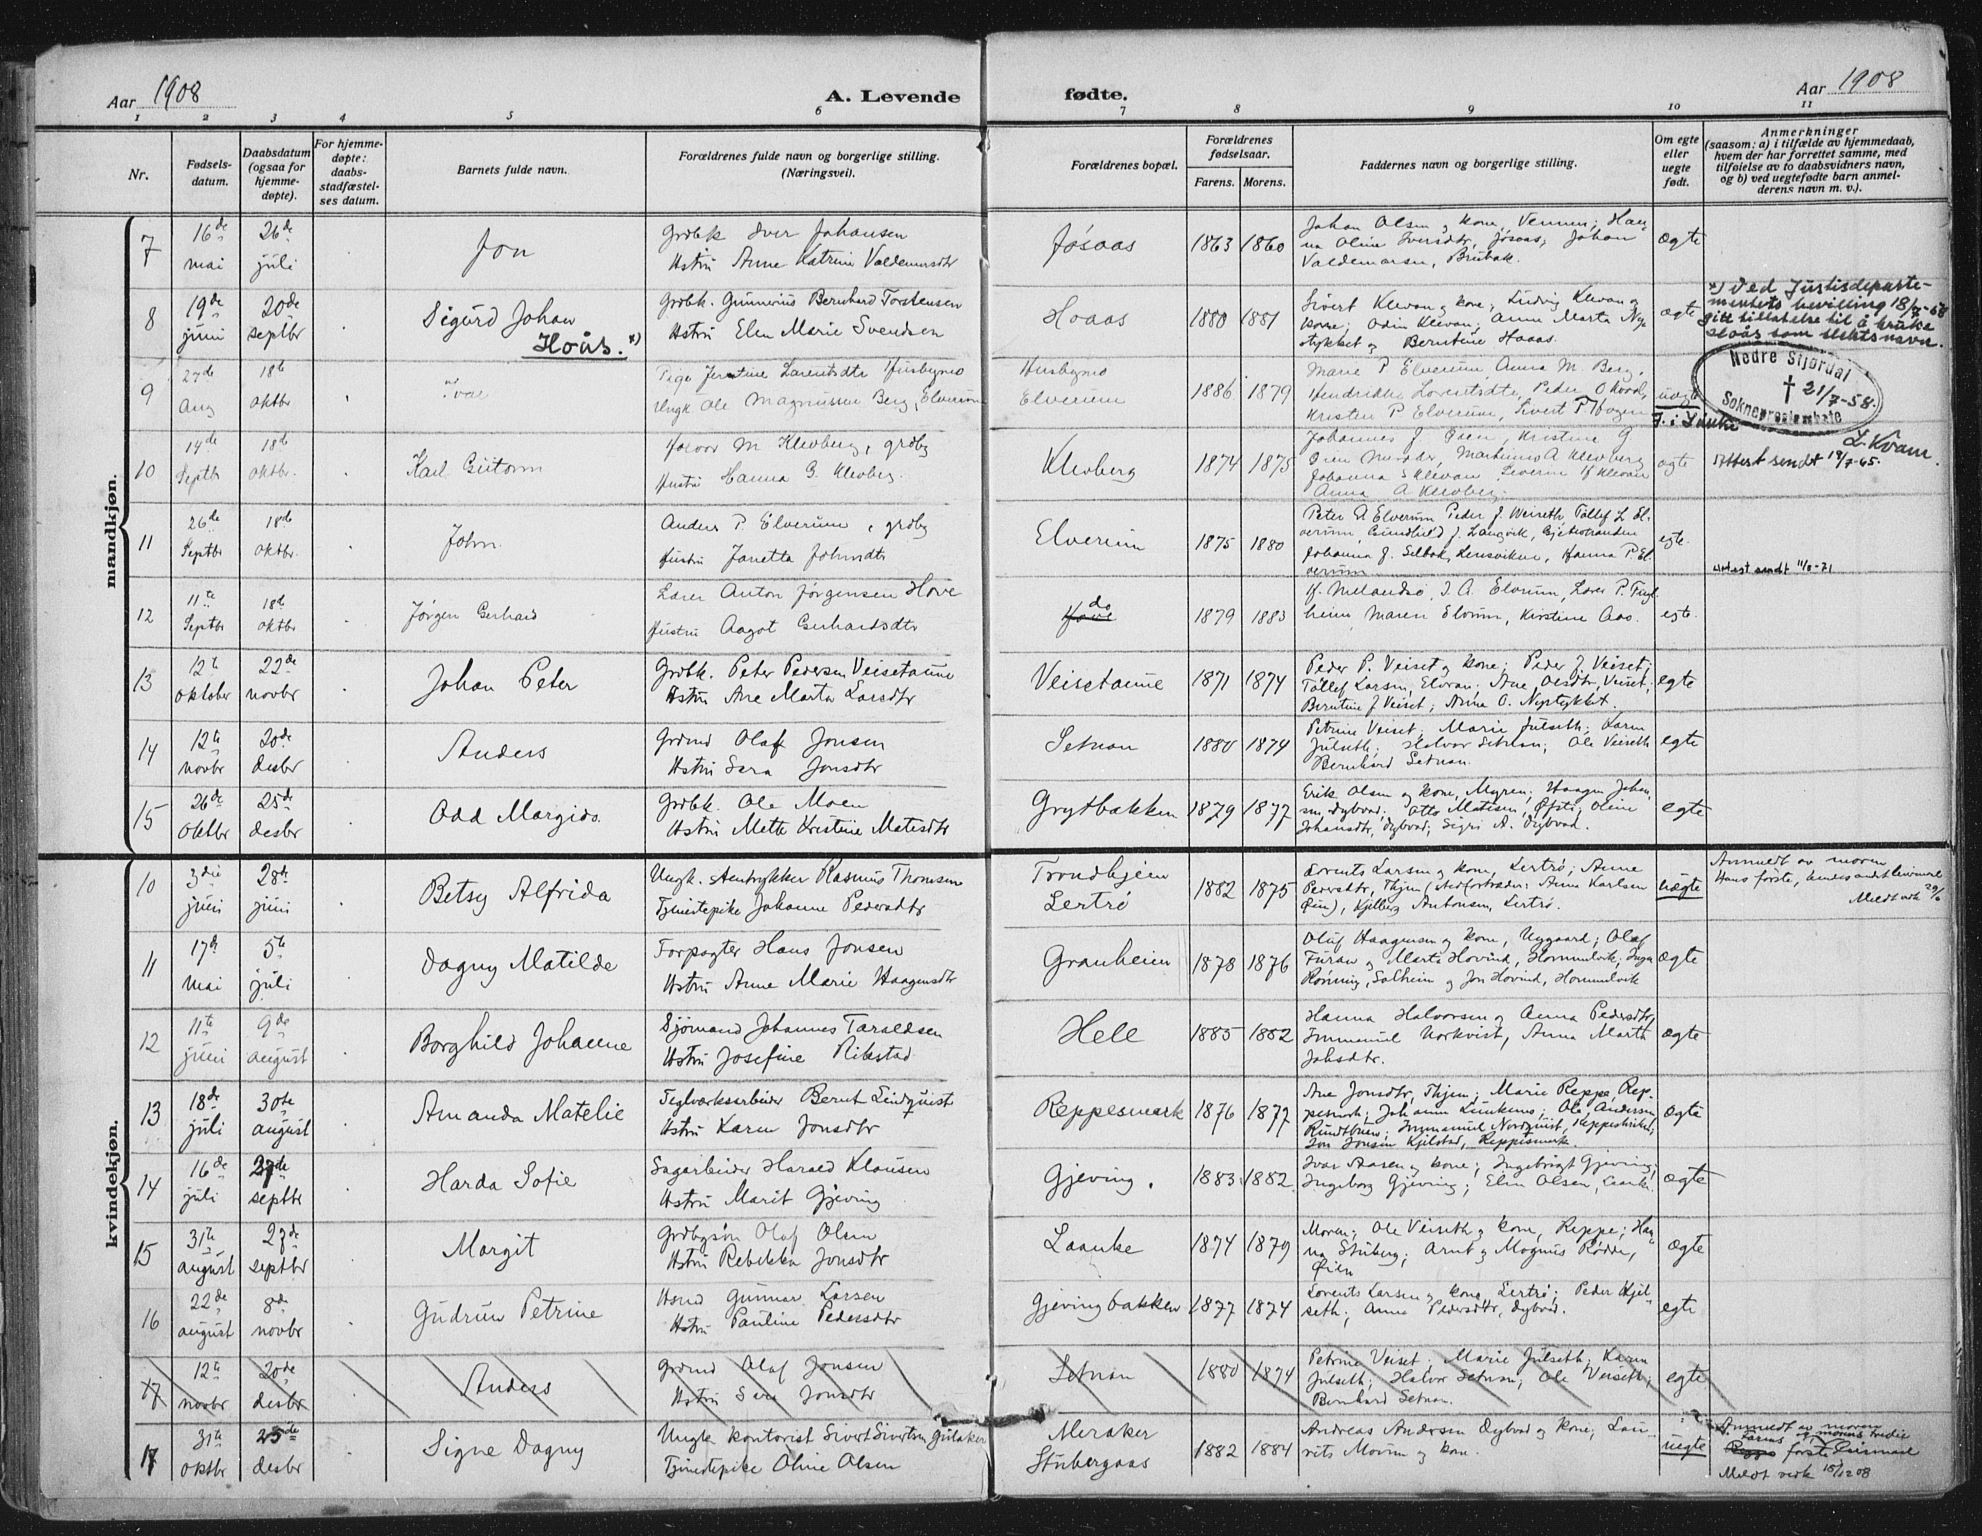 Aar 1908
A. Levende
fødte.
Aar 1908
1 2 3 4 5 6 7 8 9 10 11
Nr.
Fødsels-
datum.
Daabsdatum
(ogsaa for
hjemme-
døpte).
For hjemme-
døpte:
daabs-
stadfæstel-
ses datum.
Barnets fulde navn.
Forældrenes fulde navn og borgerlige stilling.
(Næringsvei).
Forældrenes bopæl.
Forældrenes
fødselsaar.
Farens. Morens.
Faddernes navn og borgerlige stilling.
Om egte
eller
uegte
født.
Anmerkninger
(saasom: a) i tilfælde av hjemmedaab,
hvem der har forrettet samme, med
tilføielse av to daabsvidners navn,
og b) ved uegtefødte barn anmel-
derens navn m. v.).
mandkjøn.
7
16de
mai
26de
juli
Jon
Grdbk Iver Johansen
Hstru Anne Katrine Valdemarsdtr
Jøsaas
1863 1860
Johan Olsen og kone, Vennen; Han-
na Oline Iversdtr, Jøsaas; Johan
Valdemarsen, Brubak.
ægte
8
19de
juni
20de
septbr
Sigurd Johan
Hoås. *)
Grdbk. Gunnerius Bernhard Torstensen
Hstru Elen Marie Svendsen
Hoaas
1880 1881
Sivert Klevan og kone; Ludvig Klevan og
kone; Odin Klevan; Anne Marta Ny-
stykket og Berntine Hoaas.
ægte
*) Ved Justisdeparte-
mentets bevilling 18/7-58
gitt tillatelse til å bruke
Hoås som slektsnavn.
Nedre Stjørdal
21/7-58.
Sokneprestembete
L. Kvam.
9
27de
Aug
18de
oktbr
Ivar
Pige Jerstine Larentsdtr Husbymo
Ungk Ole Magnussen Berg, Elverum
Husbymo
Elverum
1886 1879
Marie P Elverum Anna M. Berg.
Hendrikke Lorentsdtr, Peder
Kristen P Elverum, Sivert P Hagen
uegte
F. i Lånke
10
14de
Septbr
18de
oktbr.
Karl Guttorm
Halvor M Klevberg, grdbg
Hustru Hanna G. Klevberg.
Klevberg
1874 1875
Johannes J. Øien, Kristine G
Øien, Martinus A Klevberg
Johanna S Klevan, Severin H Klevan
Anna A Klevberg.
ægte
Attest sendt 19/7-65.
11
26de
Septbr
18de
oktbr.
John
Anders P Elverum, grdbg
Hustru Janetta Johnsdtr
Elverum
1875 1880
Peter A Elverum Peder J. Weiseth Tøllef L El-
verum, Gunhild J. Langvik, Gjetstranden
Johanna J. Selbak, Lensviken, Hanna P El-
verum
egte.
Attest sendt 11/8-71
12
11te
Septbr
18de
oktbr
Jørgen Gerhard
Lærer Anton Jørgensen Hove
Hustru Aagot Gerhardsdtr
do
1879 1883
H. Melandsø, I. A. Elverum, Lærer P. Fugl-
heim Maren Elverum, Kirstine Aas.
egte.
13
12te
oktober
22de
novbr
Johan Peter
Grdbk. Peter Pedersen Veisetaune
Hstru Ane Marta Larsdtr
Veisetaune
1871 1874
Peder P. Veiset og kone; Peder J. Veiset;
Tøllef Larsen, Elvran; Ane Olsdtr, Veiset;
Berntine J Veiset; Anne O. Nystykket.
egte
14
12te
novbr
20de
desbr
Anders
Grdmd Olaf Jonsen
Hstru Sara Jonsdtr
Setnan
1880 1874
Petrine Veiset; Marie Julseth; Karen
Julseth; Halvor Setnan; Ole Veiseth
Bernhard Setnan.
egte
15
26de
oktbr
25de
desbr
Odd Margido.
Grdbk. Ole Moen
Hstru Mette Kristine Matisdtr
Grytbakken
1879 1877
Erik Olsen og kone, Myren; Haagen Johan-
sen, Dybvad; Otto Matisen, Øfsti; Oline
Johansdtr, Dybvad; Sigri A. Dybvad.
egte
kvindekjøn.
10
3die
juni
28de
juni
Betsy Alfrida
Ungk. Stentrykker Rasmus Thomsen
Tjenestepike Johanne Pedersdtr
Trondhjem
Lertrø
1882 1875
Lorents Larsen og kone, Lertrø; Anne
Persdtr, Thjem (stedfortræder: Anne Karlsen
Øien), Kjelberg Antonsen, Lertrø.
uægte
Anmeldt av moren
Hans første, hendes andet leiermaal
Meldt vrk 29/6
11
17de
mai
5te
juli
Dagny Matilde
Forpagter Hans Jonsen
Hstru Anne Marie Haagensdtr
Granheim
1878 1876
Oluf Haagensen og kone, Nygaard; Olaf
Furan og Marta Hovind, Hommelvik; Inga
Rønning, Solheim og Jon Hovind, Hommelvik
ægte
12
11te
juni
9de
august
Borghild Johanne
Sjømand Johannes Taraldsen
Hstru Josefine Rikstad
Hell
1885 1882
Hanna Halvorsen og Anna Pedersdtr,
Immanuel Norkvist, Anna Marta
Johsdtr.
ægte
13
18de
juli
30te
august
Amanda Matelie
Teglverksarbeider Bernt Lindquist
Hstru Karen Jonsdtr
Reppesmark
1876 1877
Ane Jonsdtr, Thjem; Marie Reppe, Rep-
pesmark; Johanna Linkums; Ole Andersen,
Rundtbuen; Immanuel Nordquist, Reppeshriket;
Jon Jonsen Kjelstad, Reppesmark
ægte
14
16de
juli
27de
septbr
Harda Sofie
Sagarbeider Harald Klausen
Hstru Marit Gjeving
Gjeving.
1883 1882
Ivar Aasen og kone; Ingebrigt Gjeving;
Ingeborg Gjeving; Elin Olsen, Laank.
ægte
15
31te
august
27de
septbr
Margit
Grdbgsøn Olaf Olsen
Hstru Rebekka Jonsdtr
Laanke
1874 1879
Moren; Ole Veiseth og kone, Reppe; Han-
na Stuberg; Arnt og Magnus Rødde,
Øien
ægte
16
22de
august
8de
novbr
Gudrun Petrine
Hsmd Gunnar Larsen
Hstru Pauline Pedersdtr
Gjevingbakken
1877 1874
Lorents Larsen og kone, Lertrø; Peder Kjel-
seth; Anne Pedersdtr, Dybvad.
egte
17
12te
novbr
20de
desbr
Anders
Grdmd Olaf Jonsen
Hstru Sara Jonsdtr
Setnan
1880 1874
Petrine Veiset; Marie Julseth; Karen
Julseth; Halvor Setnan; Ole Veiseth;
Bernhard Setnan.
egte
17
31te
oktbr
25de
desbr
Signe Dagny
Ungk kontorist Sivert Sivertsen Gulaker
Tjenestepike Oline Olsen
Meraker
Stubergaas
1882 1884
Andreas Andersen Dybvad og kone; Lau-
rits Morun og kone.
uegte
Anmeldt av moren
Farens og morens tredie
første Leiermaal
Meldt vrk 18/12 08